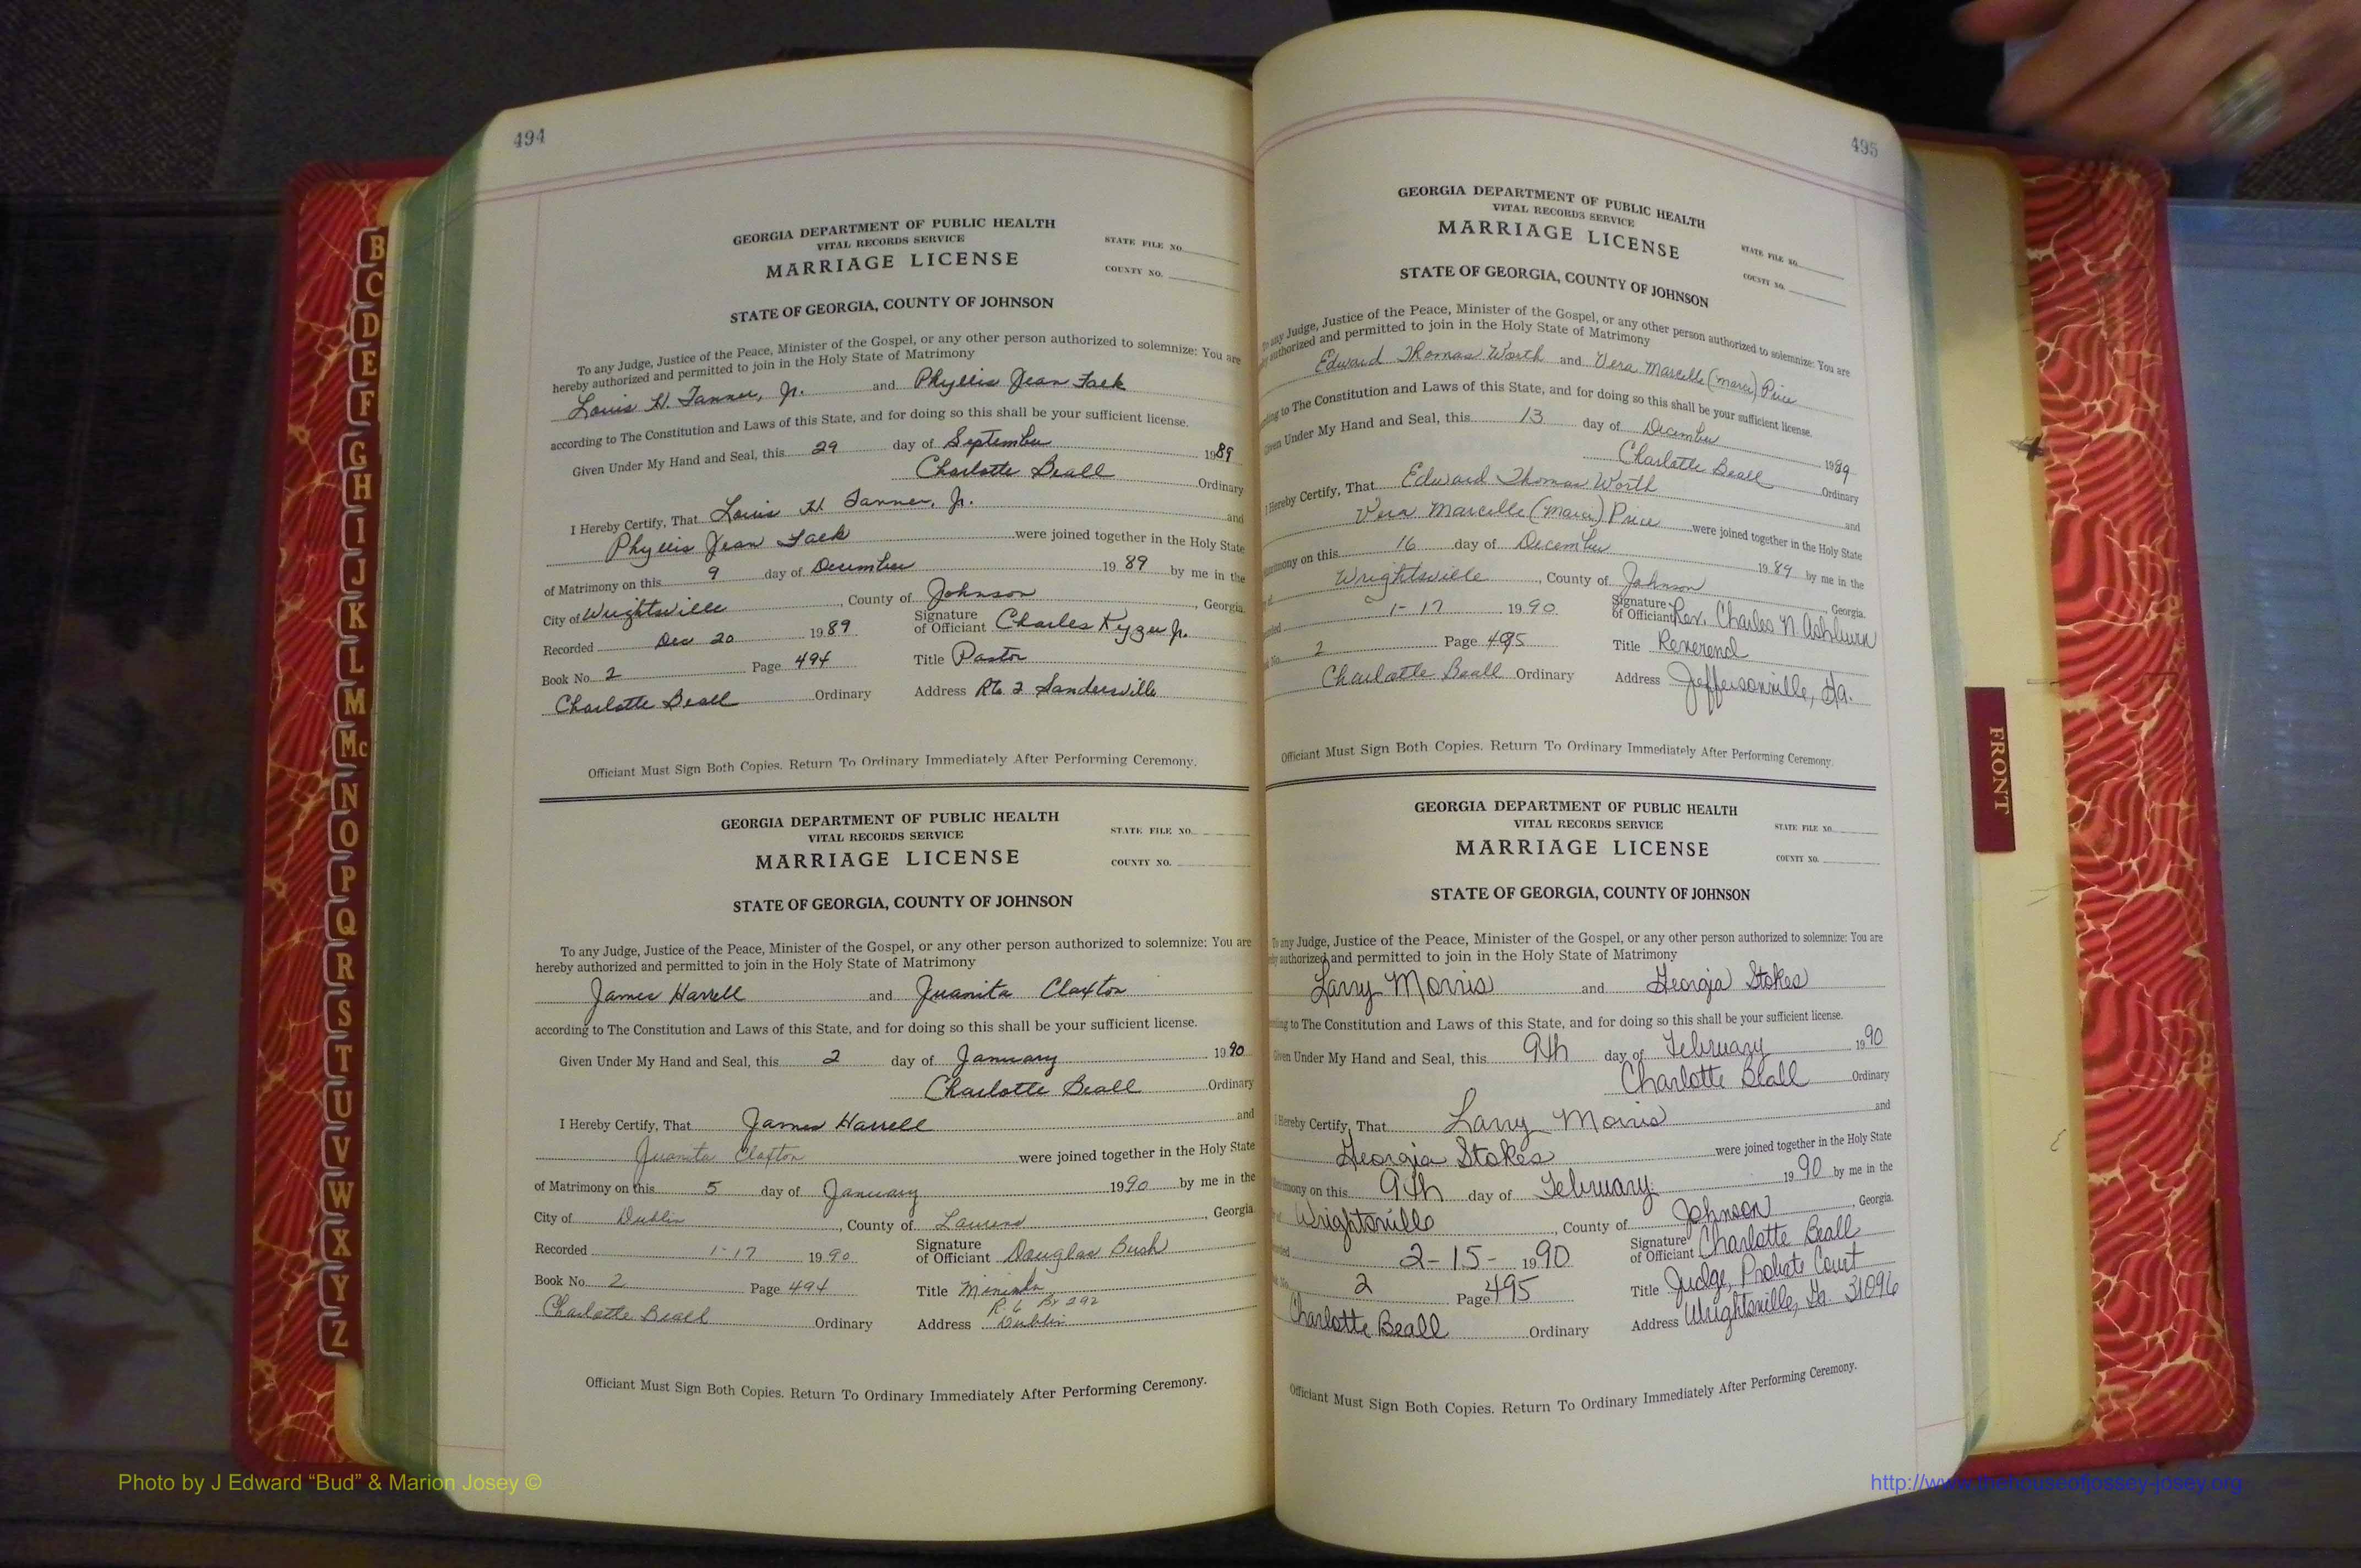 494
GEORGIA DEPARTMENT OF PUBLIC HEALTH
VITAL RECORDS SERVICE
MARRIAGE LICENSE
STATE FILE NO.
COUNTY NO.
STATE OF GEORGIA, COUNTY OF JOHNSON
To any Judge, Justice of the Peace, Minister of the Gospel, or any other person authorized to solemnize: You are
hereby authorized and permitted to join in the Holy State of Matrimony
Louis H. Tanner, Jr. and Phyllis Jean
according to The Constitution and Laws of this State, and for doing so this shall be your sufficient license.
Given Under My Hand and Seal, this 29 day of September 1989
Charlotte Beall Ordinary
I Hereby Certify, That Louis H Tanner, Jr. and
Phyllis Jean were joined together in the Holy State
of Matrimony on this 9 day of December 19 89 by me in the
City of Wrightsville, County of Johnson, Georgia.
Recorded Dec 20 1989 Signature of Officiant Charles Kyzer Jr.
Book No. 2 Page 494 Title Pastor
Charlotte Beall Ordinary Address Rt. 2 Sandersville
Officiant Must Sign Both Copies. Return To Ordinary Immediately After Performing Ceremony.
GEORGIA DEPARTMENT OF PUBLIC HEALTH
VITAL RECORDS SERVICE
MARRIAGE LICENSE
STATE FILE NO.
COUNTY NO.
STATE OF GEORGIA, COUNTY OF JOHNSON
To any Judge, Justice of the Peace, Minister of the Gospel, or any other person authorized to solemnize: You are
hereby authorized and permitted to join in the Holy State of Matrimony
James Harrell and Juanita Claxton
according to The Constitution and Laws of this State, and for doing so this shall be your sufficient license.
Given Under My Hand and Seal, this 2 day of January 1990
Charlotte Beall Ordinary
I Hereby Certify, That James Harrell and
Juanita Claxton were joined together in the Holy State
of Matrimony on this 5 day of January 1990 by me in the
City of Dublin, County of Laurens, Georgia.
Recorded 1-17 1990 Signature of Officiant Douglas Bush
Book No. 2 Page 494 Title Minister
R. 6 Bx 292
Charlotte Beall Ordinary Address Dublin
Officiant Must Sign Both Copies. Return To Ordinary Immediately After Performing Ceremony.
495
GEORGIA DEPARTMENT OF PUBLIC HEALTH
VITAL RECORDS SERVICE
MARRIAGE LICENSE
STATE FILE NO.
COUNTY NO.
STATE OF GEORGIA, COUNTY OF JOHNSON
To any Judge, Justice of the Peace, Minister of the Gospel, or any other person authorized to solemnize: You are
authorized and permitted to join in the Holy State of Matrimony
Edward Thomas Worth and Vera Marcelle (Marci) Price
to The Constitution and Laws of this State, and for doing so this shall be your sufficient license.
Given Under My Hand and Seal, this 13 day of December 1989
Charlotte Beall Ordinary
I Hereby Certify, That Edward Thomas Worth and
Vera Marcelle (Marci) Price were joined together in the Holy State
on this 16 day of December 1989 by me in the
Wrightsville, County of Johnson Georgia.
1-17 1990 Signature of Officiant Rev. Charles N. Ashburn
2 Page 495 Title Reverend
Charlotte Beall Ordinary Address Jeffersonville, Ga.
Officiant Must Sign Both Copies. Return To Ordinary Immediately After Performing Ceremony.
GEORGIA DEPARTMENT OF PUBLIC HEALTH
VITAL RECORDS SERVICE
MARRIAGE LICENSE
STATE FILE NO.
COUNTY NO.
STATE OF GEORGIA, COUNTY OF JOHNSON
To any Judge, Justice of the Peace, Minister of the Gospel, or any other person authorized to solemnize: You are
authorized and permitted to join in the Holy State of Matrimony
Larry Morris and Georgia Stokes
to The Constitution and Laws of this State, and for doing so this shall be your sufficient license.
Given Under My Hand and Seal, this 9th day of February 1990
Charlotte Beall Ordinary
I Hereby Certify, That Larry Morris and
Georgia Stokes were joined together in the Holy State
on this 9th day of February 1990 by me in the
Wrightsville, County of Johnson, Georgia.
2-15- 1990 Signature of Officiant Charlotte Beall
2 Page 495 Title Judge, Probate Court
Charlotte Beall Ordinary Address Wrightsville, Ga. 31096
Officiant Must Sign Both Copies. Return To Ordinary Immediately After Performing Ceremony.
B
C
D
E
F
G
H
I
J
K
L
M
Mc
N
O
P
Q
R
S
T
U
V
W
X
Y
Z
FRONT
Photo by J Edward “Bud” & Marion Josey ©
http://www.thehouseofjossey-josey.org